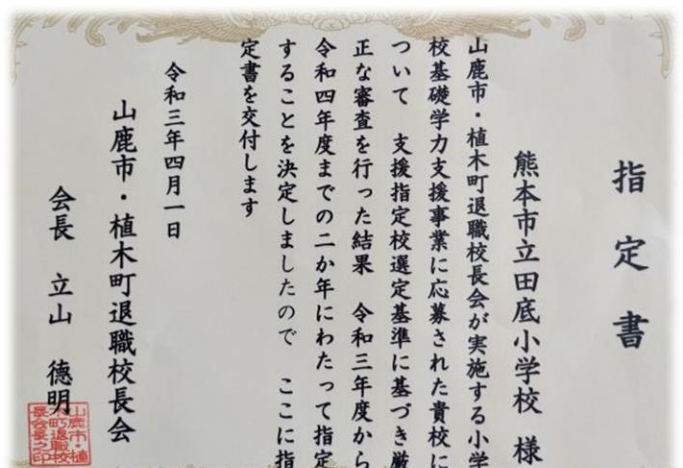 指定書
熊本市立田底小学校 様
山鹿市・植木町退職校長会が実施する小学
校基礎学力支援事業に応募された貴校に
ついて 支援指定校選定基準に基づき厳
正な審査を行った結果 令和三年度から
令和四年度までの二か年にわたって指定
することを決定しましたので ここに指
定書を交付します
令和三年四月一日
山鹿市・植木町退職校長会
会長 立山 德明
山鹿市・植
木町退職校
長会会長之印